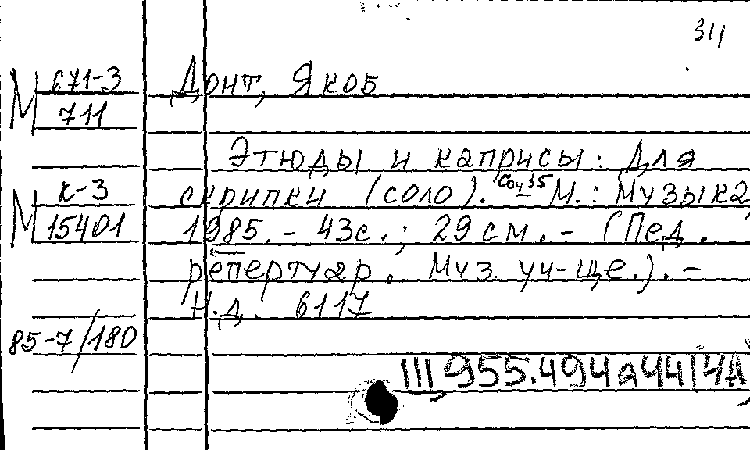 311
М 671-3
711
Донт, Якоб
Этюды и каприсы: Для
М К-3
15401
скрипки (соло). Соч 35 М.: Музыка
1985. - 43с.; 29 см. - (Пед.
репертуар. Муз. уч-ще.). -
Н.д. 6117
85-7/180
III 955.494а44(4А)